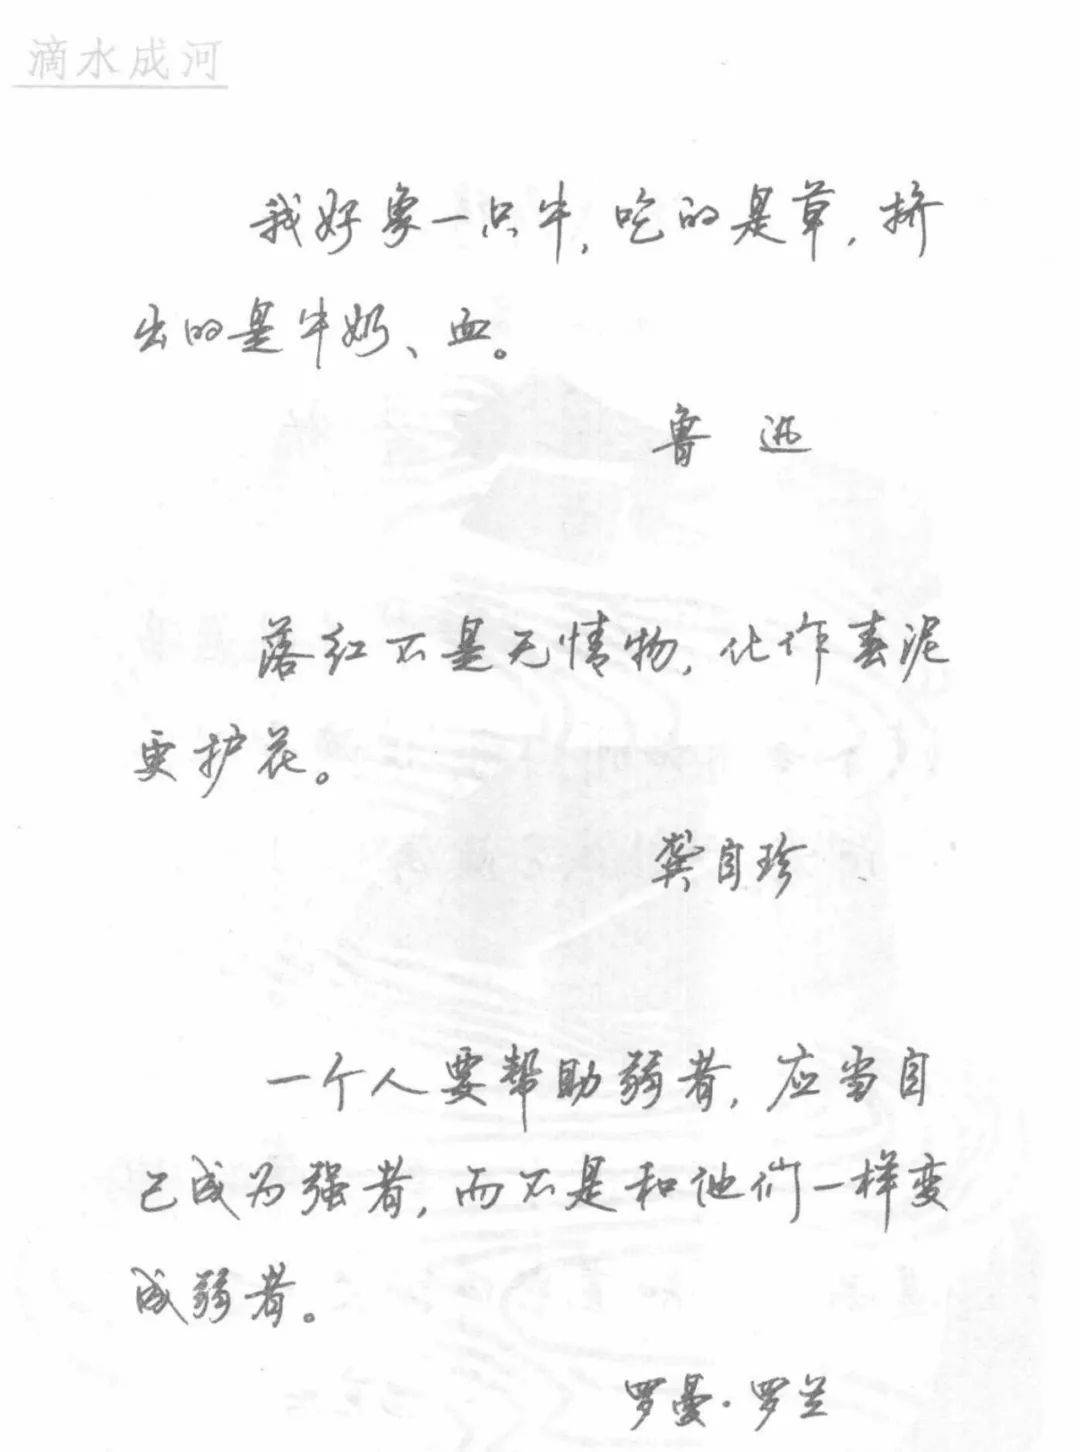 滴水成河
我好象一只牛，吃的是草，挤
出的是牛奶、血。
鲁 迅
落红不是无情物，化作春泥
更护花。
龚自珍
一个人要帮助弱者，应当自
己成为强者，而不是和他们一样变
成弱者。
罗曼·罗兰